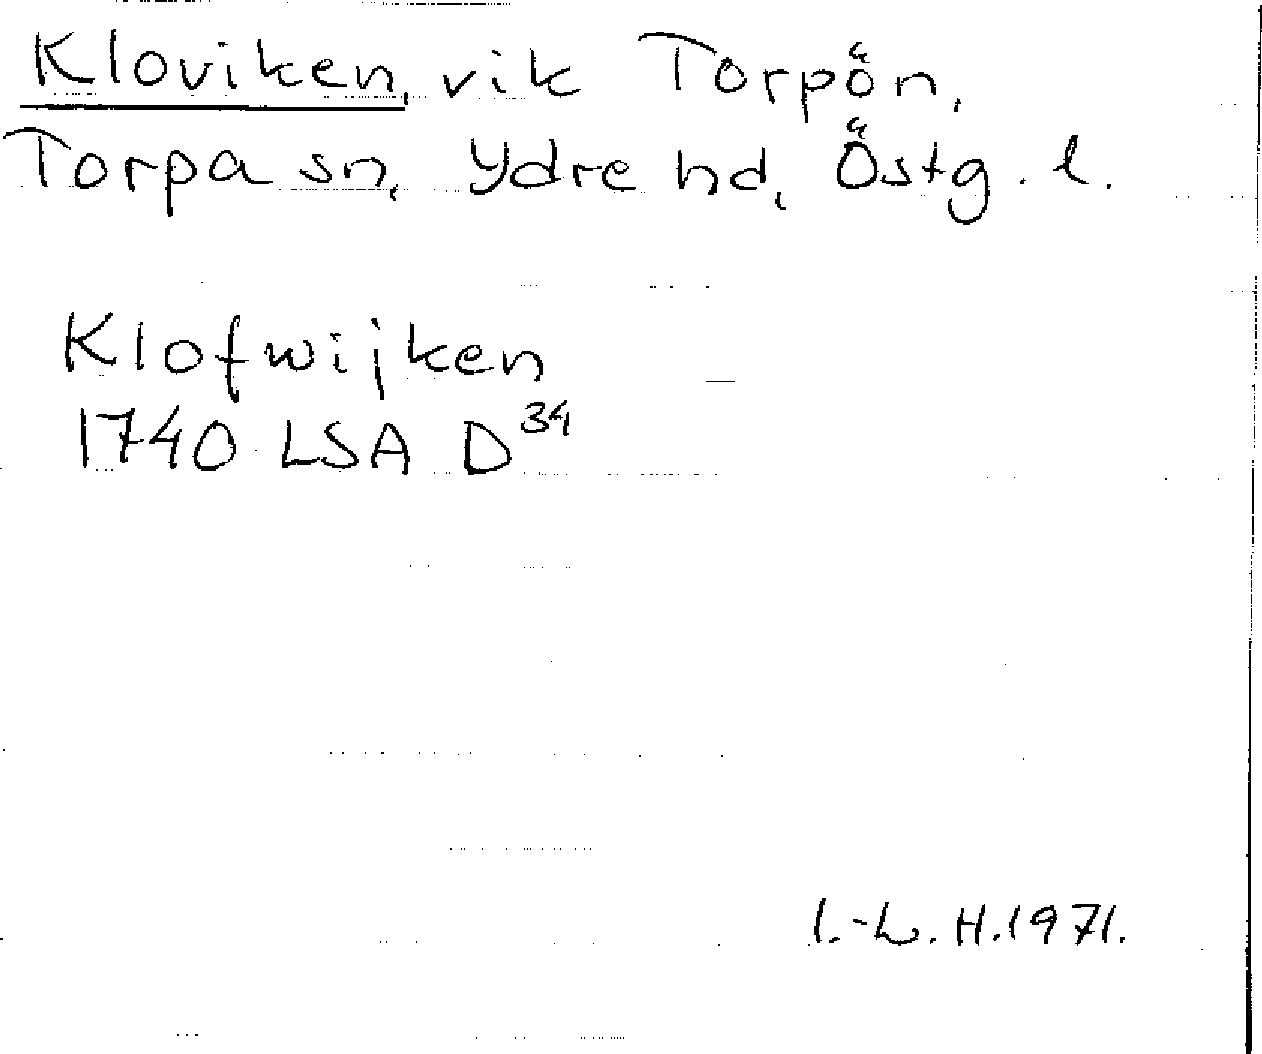 Kloviken, vik Torpön,
Torpa sn, Ydre hd, Östg. l.
Klofwijken
1740 LSA D³⁴
I.-L. H. 1971.